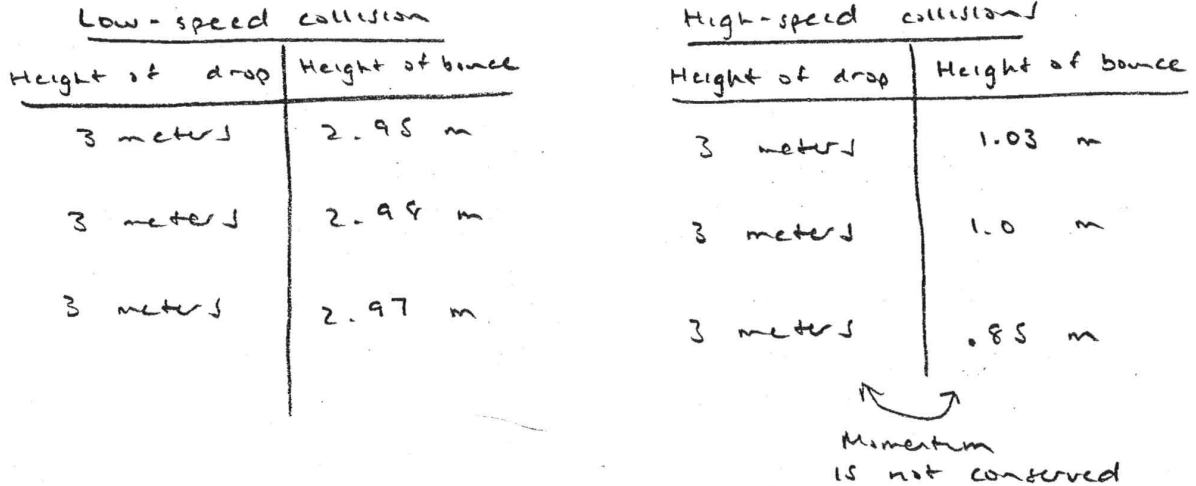 Low-speed collision
Height of drop Height of bounce
3 meters 2.95 m
3 meters 2.98 m
3 meters 2.97 m
High-speed collisions
Height of drop Height of bounce
3 meters 1.03 m
3 meters 1.0 m
3 meters .85 m
Momentum
is not conserved